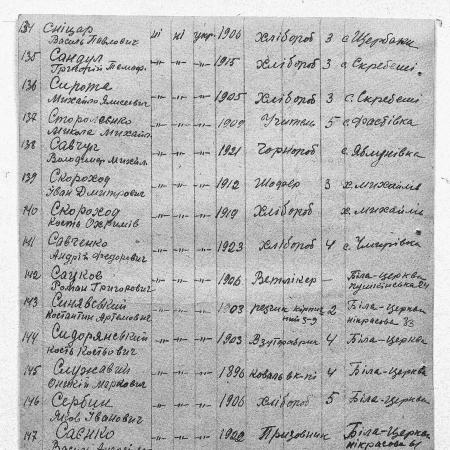 134 Сніцар ні ні укр. 1906 Хлібороб 3 с. Щербаки
Василь Павлович
135 Сандул -"- -"- -"- 1915 Хлібороб 3 с. Скребеші.
Григорій
136 Сирота -"- -"- -"- 1905 Хлібороб 3 с. Скребеші
Михайло
137 -"- -"- -"- 1909 Учитель 5 с. Фастівка
Микола Михайл.
138 Савчук -"- -"- -"- 1921 Чорнороб с. Яблунівка
Володимир Михайл.
139 Скороход -"- -"- -"- 1912 Шофер 3 х. Михайлів
Іван Дмитрович
140 Скороход -"- -"- -"- 1919 Хлібороб х. Михайлів
Кость Охрімів
141 Савченко -"- -"- -"- 1923 Хлібороб 4 с.
Андрій Федорович
142 Сацков -"- -"- -"- 1906 — Біла-Церква
Роман Григорович
143 Синявський -"- -"- -"- 1903 2 Біла-Церква
Костантин Артемович некрасова 33
144 Сидорянський -"- -"- -"- 1903 4 Біла-Церква
Кость Костьович
145 Служавий -"- -"- -"- 1896 4 Біла-Церква
Маркович
146 Сербин -"- -"- -"- 1906 Хлібороб 5 Біла-Церква
Яков Іванович
147 Саєнко -"- -"- -"- 1902 Призовник Біла-Церква